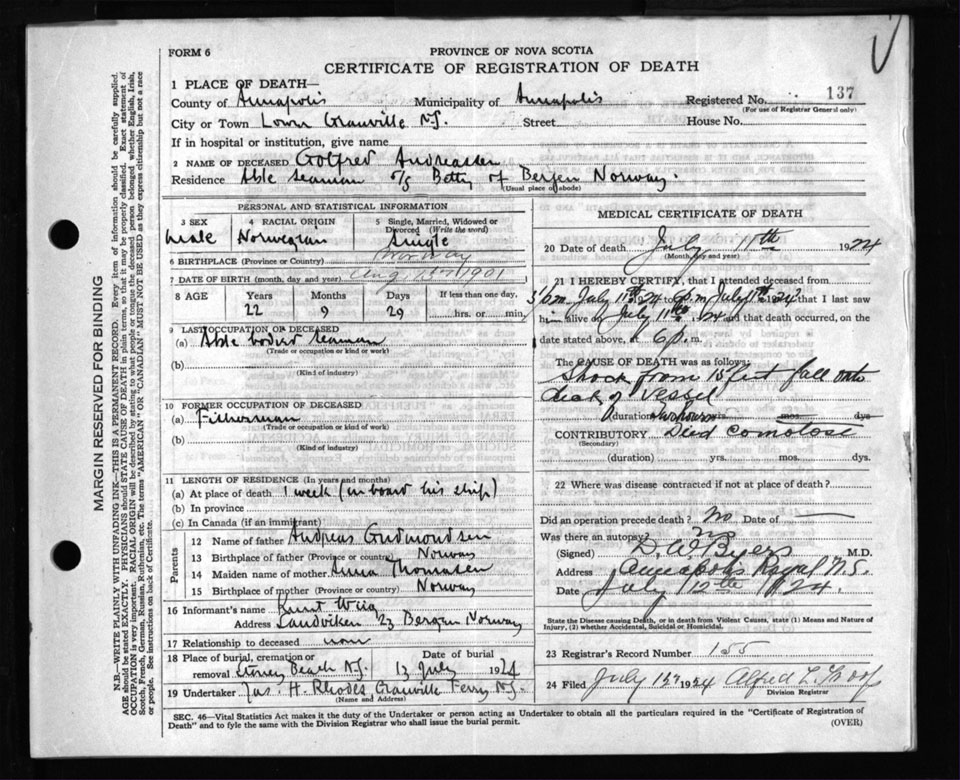 FORM 6
PROVINCE OF NOVA SCOTIA
CERTIFICATE OF REGISTRATION OF DEATH
MARGIN RESERVED FOR BINDING
N.B.—WRITE PLAINLY WITH UNFADING INK—THIS IS A PERMANENT RECORD. Every item of information should be carefully supplied.
AGE should be stated EXACTLY. PHYSICIANS should STATE CAUSE OF DEATH in plain terms, so that it may be properly classified. Exact statement of
OCCUPATION is very important. RACIAL ORIGIN will be described by stating to what people or tongue the deceased person belonged whether English, Irish,
Scotch, French, German, Russian, Ruthenian, etc. The terms "AMERICAN" OR "CANADIAN" MUST NOT BE USED as they express citizenship but not a race
or people. See instructions on back of Certificate.
1 PLACE OF DEATH—
County of Annapolis Municipality of Annapolis Registered No. 137
(For use of Registrar General only)
City or Town Lower Granville N.S. Street House No.
If in hospital or institution, give name
2 NAME OF DECEASED Golfred Andreassen
Residence Able seaman S/S Betty of Bergen Norway.
(Usual place of abode)
PERSONAL AND STATISTICAL INFORMATION
3 SEX
male
4 RACIAL ORIGIN
Norwegian
5 Single, Married, Widowed or
Divorced (Write the word)
Single
6 BIRTHPLACE (Province or Country) Norway
7 DATE OF BIRTH (month, day and year) Aug 1901
8 AGE Years Months Days If less than one day,
22 9 29 hrs. or min.
9 LAST OCCUPATION OF DECEASED
(a) Able bodied seaman
(Trade or occupation or kind or work)
(b)
(Kind of industry)
10 FORMER OCCUPATION OF DECEASED
(a) Fisherman
(Trade or occupation or kind or work)
(b)
(Kind of industry)
11 LENGTH OF RESIDENCE (In years and months)
(a) At place of death 1 week (on board his ship)
(b) In province
(c) In Canada (if an immigrant)
Parents
12 Name of father Andreas Gudmondsen
13 Birthplace of father (Province or country) Norway
14 Maiden name of mother Anna Thomasen
15 Birthplace of mother (Province or country) Norway
16 Informant's name Wiig
Address Sandviken 23 Bergen Norway
17 Relationship to deceased none
18 Place of burial, cremation or Date of burial
removal Stoney Beach N.S. 13 July 1924
19 Undertaker Jas. H. Rhodes Granville Ferry N.S.
(Name and Address)
MEDICAL CERTIFICATE OF DEATH
20 Date of death July 11th 1924
(Month, day and year)
21 I HEREBY CERTIFY, that I attended deceased from
July 11th 1924 to 6 p.m July 11th 1924 that I last saw
him alive on July 11th, 24 and that death occurred, on the
date stated above, at 6 p. m.
The CAUSE OF DEATH was as follows:
Shock from 15 feet fall onto
deck of vessel
(duration) hours yrs. mos. dys.
CONTRIBUTORY Died Comotose
(Secondary)
(duration) yrs. mos. dys.
22 Where was disease contracted if not at place of death?
Did an operation precede death? no Date of
Was there an autopsy? no
(Signed) D. W. Byers M.D.
Address Annapolis Royal N.S.
Date July 12th 1924.
State the Disease causing Death, or in death from Violent Causes, state (1) Means and Nature of
Injury, (2) whether Accidental, Suicidal or Homicidal.
23 Registrar's Record Number 155
24 Filed July 1924 Alfred L. Troop
Division Registrar
SEC. 46—Vital Statistics Act makes it the duty of the Undertaker or person acting as Undertaker to obtain all the particulars required in the "Certificate of Registration of
Death" and to fyle the same with the Division Registrar who shall issue the burial permit. (OVER)